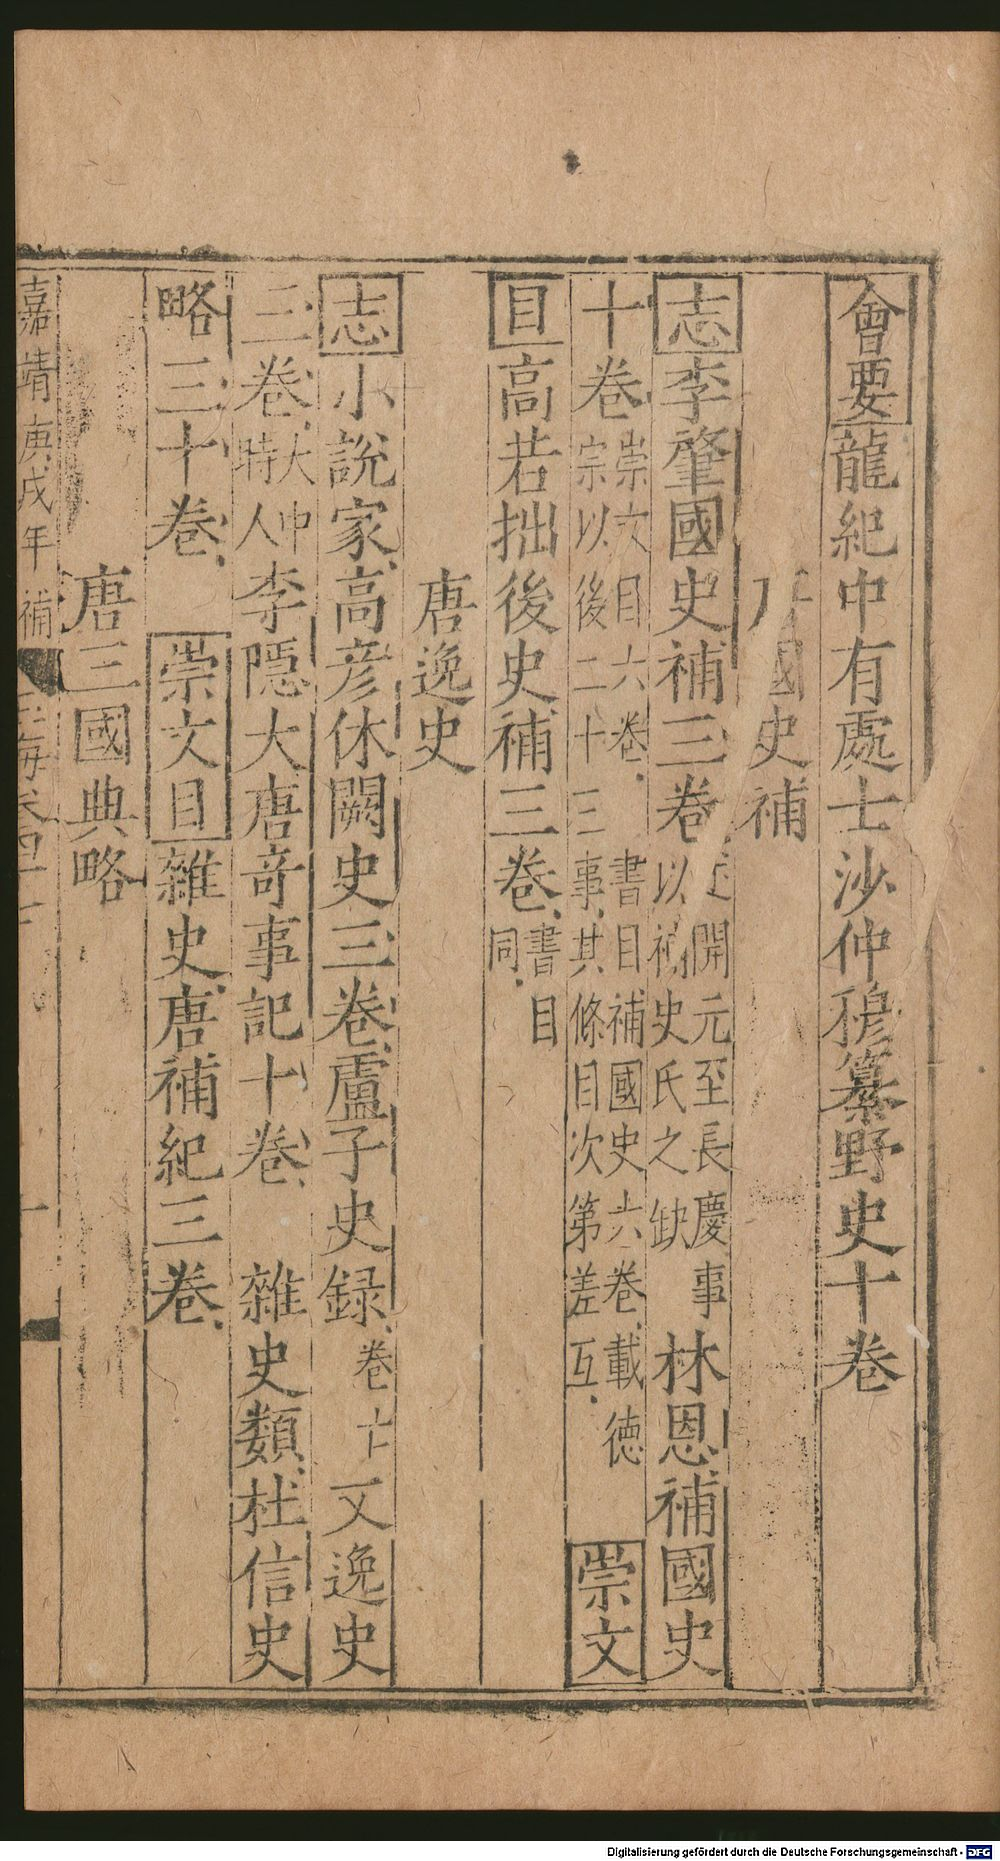 會要龍紀中有處士沙仲穆纂野史十卷
國史補
志李肇國史補三卷述開元至長慶事以補史氏之缺林恩補國史
十卷崇文目六卷書目補國史六卷載德宗以後二十三事其條目次第差互崇文
目高若拙後史補三卷書目同
唐逸史
志小說家高彦休闕史三卷盧子史録卷亡又逸史
三卷大中時人李隠大唐竒事記十卷雜史類杜信史
略三十卷崇文目雜史唐補紀三卷
唐三國典略
嘉靖庚戌年補
Digitalisierung gefördert durch die Deutsche Forschungsgemeinschaft - DFG